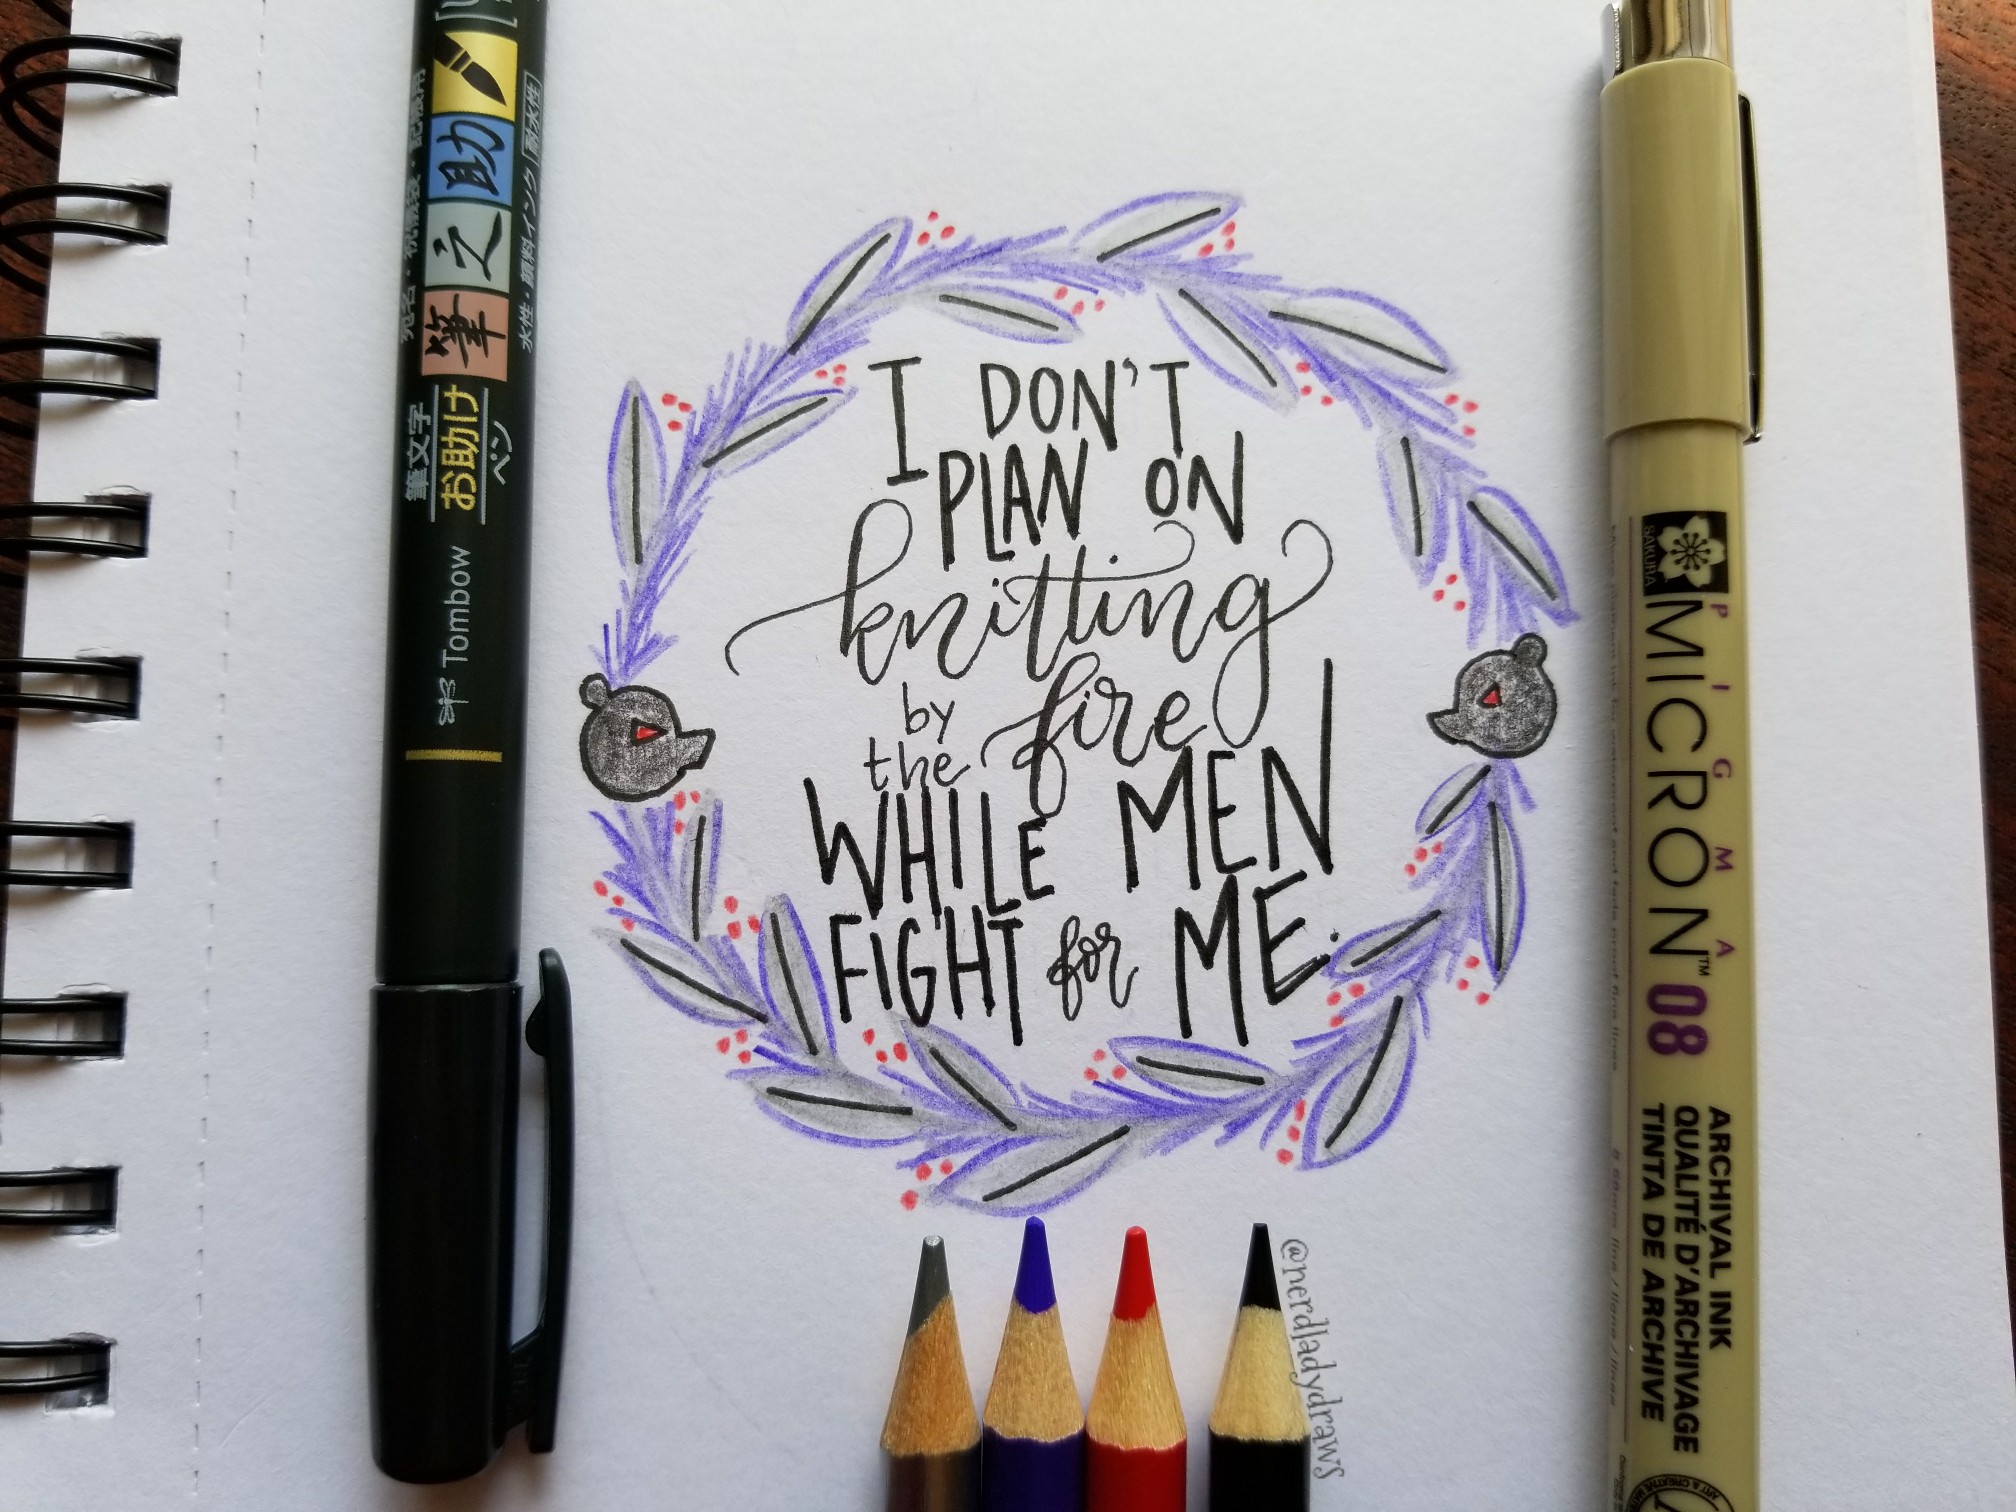 I DON'T
PLAN ON
knitting
by
the fire
WHILE MEN
FIGHT for ME.
@nerdladydraws
筆之助
水性・顔料インク 耐水性
筆文字
お助け
ペン
Tombow
SAKURA
PIGMA
MICRON™ 08
ARCHIVAL INK
QUALITÉ D'ARCHIVAGE
TINTA DE ARCHIVE